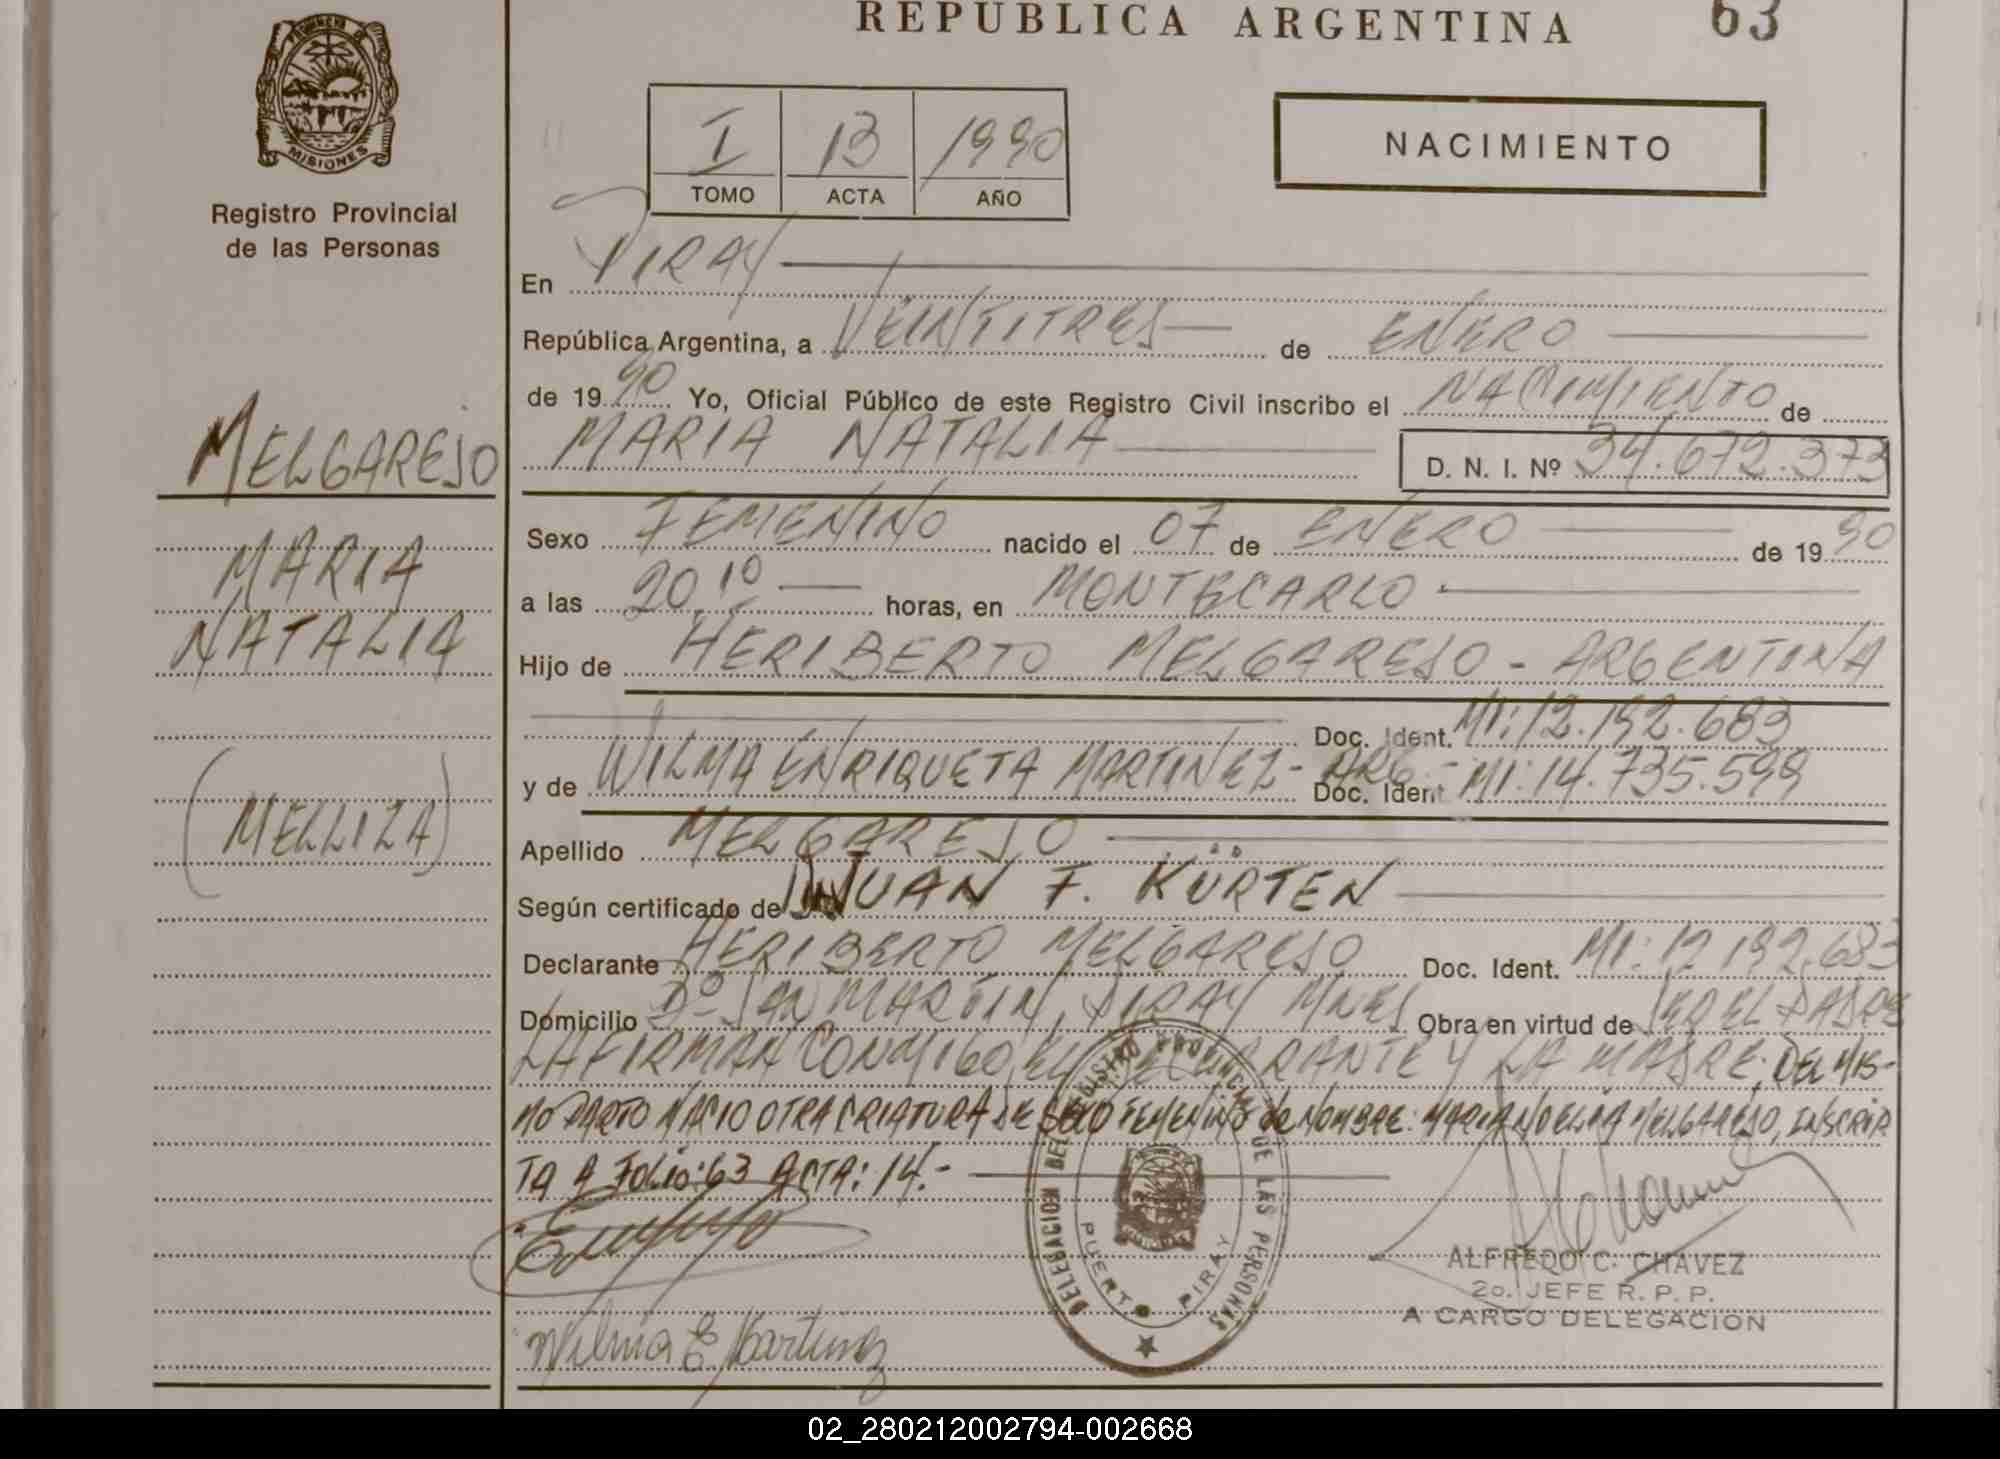 REPUBLICA ARGENTINA 63
PROVINCIA DE
MISIONES
Registro Provincial
de las Personas
I 13 1990
TOMO ACTA AÑO
NACIMIENTO
En PIRAY
República Argentina, a VEINTITRES de ENERO
de 1990 Yo, Oficial Público de este Registro Civil inscribo el NACIMIENTO de
MARIA NATALIA D. N. I. Nº 34.672.373
MELGAREJO
MARIA
NATALIA
(MELLIZA)
Sexo FEMENINO nacido el 07 de ENERO de 1990
a las 20,10 horas, en MONTECARLO
Hijo de HERIBERTO MELGAREJO - ARGENTINA
Doc. Ident. MI: 12.192.683
y de WILMA ENRIQUETA MARTINEZ - ARG. - Doc. Ident MI: 14.735.599
Apellido MELGAREJO
Según certificado de JUAN F. KÜRTEN
Declarante HERIBERTO MELGAREJO Doc. Ident. MI: 12 192.683
Domicilio Bº SAN MARTIN, PIRAY MNES Obra en virtud de SER EL PADRE
LA FIRMAN CONMIGO, EL DECLARANTE Y LA MADRE. DEL MIS-
MO PARTO NACIO OTRA CRIATURA DE SEXO FEMENINO DE NOMBRE: MARIA NOELIA MELGAREJO, INSCRIP
TA A FOLIO: 63 ACTA: 14.-
DELEGACION DEL REGISTRO PROVINCIAL DE LAS PERSONAS
PUERTO PIRAY
Wilma E. Martinez
ALFREDO C. CHAVEZ
2o. JEFE R. P. P.
A CARGO DELEGACION
02_280212002794-002668